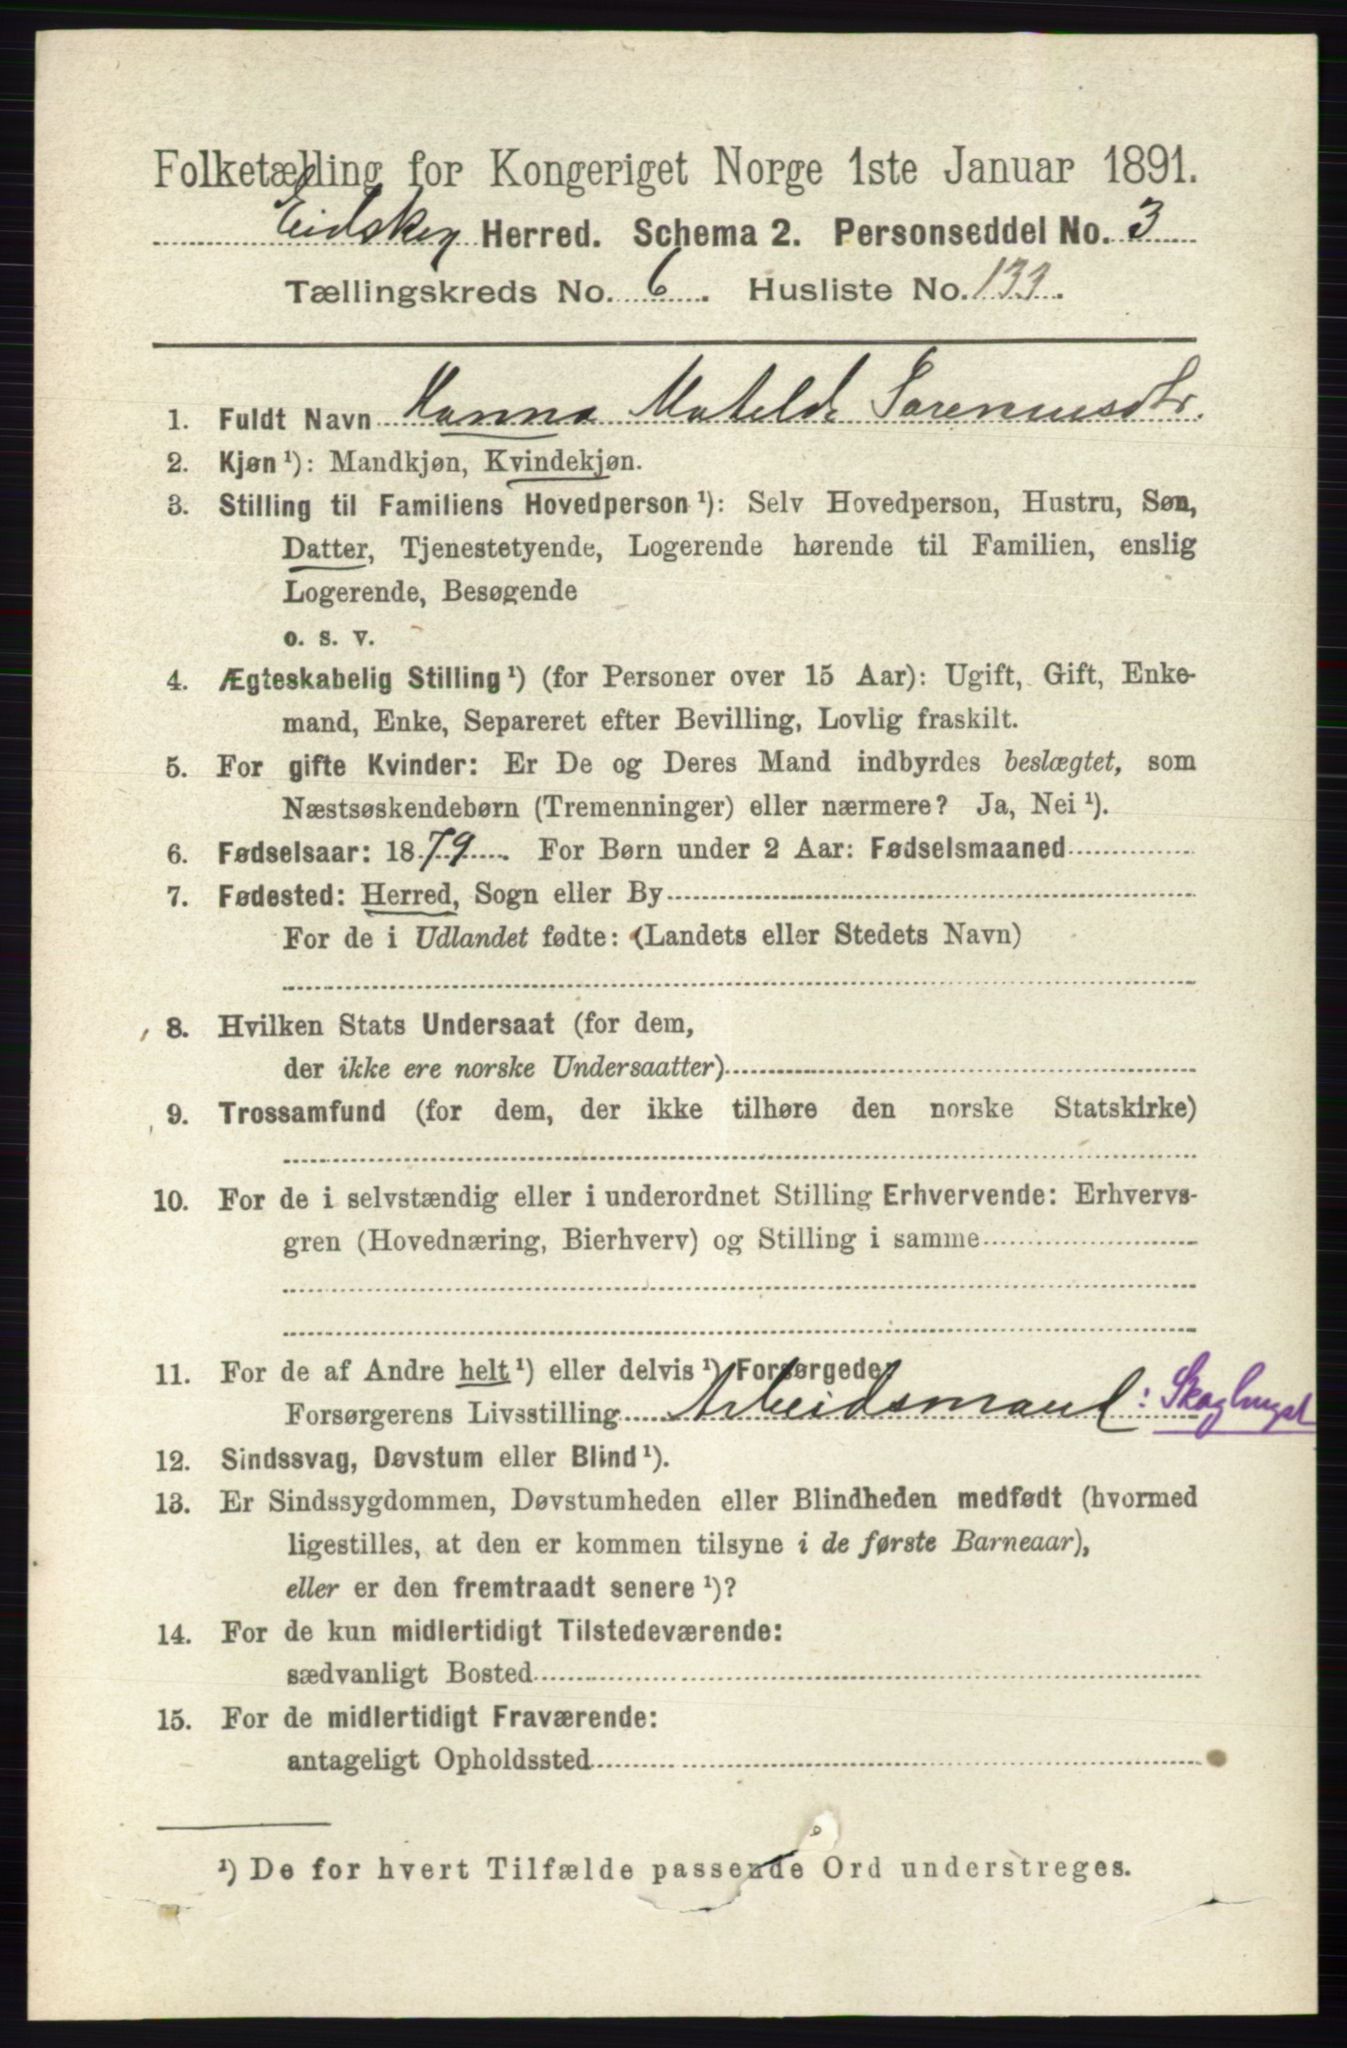 Folketælling for Kongeriget Norge 1ste Januar 1891.
Eidskog Herred. Schema 2. Personseddel No. 3
Tællingskreds No. 6. Husliste No. 133.
1. Fuldt Navn Hanna Matilde Sørennusdtr.
2. Kjøn ¹): Mandkjøn, Kvindekjøn.
3. Stilling til Familiens Hovedperson ¹): Selv Hovedperson, Hustru, Søn,
Datter, Tjenestetyende, Logerende hørende til Familien, enslig
Logerende, Besøgende
o. s. v.
4. Ægteskabelig Stilling ¹) (for Personer over 15 Aar): Ugift, Gift, Enke-
mand, Enke, Separeret efter Bevilling, Lovlig fraskilt.
5. For gifte Kvinder: Er De og Deres Mand indbyrdes beslægtet, som
Næstsøskendebørn (Tremenninger) eller nærmere? Ja, Nei ¹).
6. Fødselsaar: 1879. For Børn under 2 Aar: Fødselsmaaned
7. Fødested: Herred, Sogn eller By
For de i Udlandet fødte: (Landets eller Stedets Navn)
8. Hvilken Stats Undersaat (for dem,
der ikke ere norske Undersaatter)
9. Trossamfund (for dem, der ikke tilhøre den norske Statskirke)
10. For de i selvstændig eller i underordnet Stilling Erhvervende: Erhvervs-
gren (Hovednæring, Bierhverv) og Stilling i samme
11. For de af Andre helt ¹) eller delvis ¹) Forsørgede
Forsørgerens Livsstilling Arbeidsmand: Skoghugst
12. Sindssvag, Døvstum eller Blind ¹).
13. Er Sindssygdommen, Døvstumheden eller Blindheden medfødt (hvormed
ligestilles, at den er kommen tilsyne i de første Barneaar),
eller er den fremtraadt senere ¹)?
14. For de kun midlertidigt Tilstedeværende:
sædvanligt Bosted
15. For de midlertidigt Fraværende:
antageligt Opholdssted
¹) De for hvert Tilfælde passende Ord understreges.